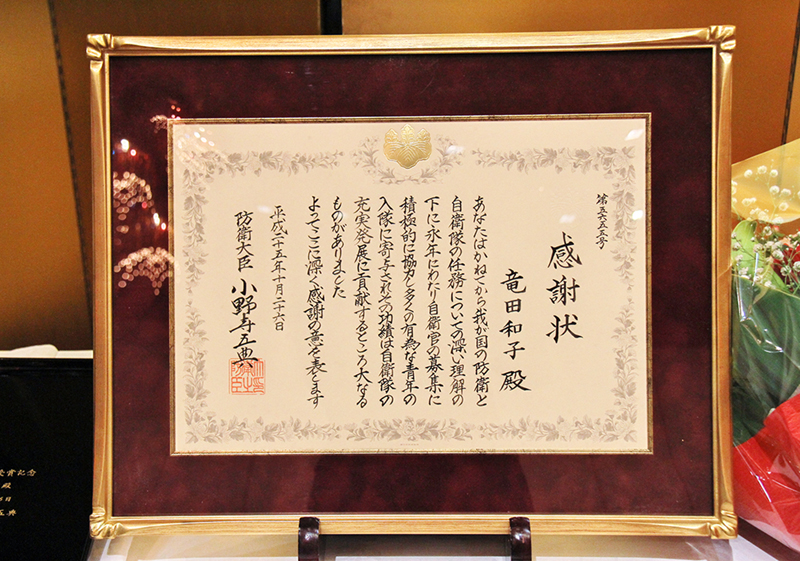 第五六五五号
感謝状
竜田和子殿
あなたはかねてから我が国の防衛と
自衛隊の任務についての深い理解の
下に永年にわたり自衛官の募集に
積極的に協力し多くの有為な青年の
入隊に寄与されその功績は自衛隊の
充実発展に貢献するところ大なる
ものがありました
よってここに深く感謝の意を表します
平成二十五年十月二十六日
防衛大臣 小野寺五典
受賞記念
殿
五典